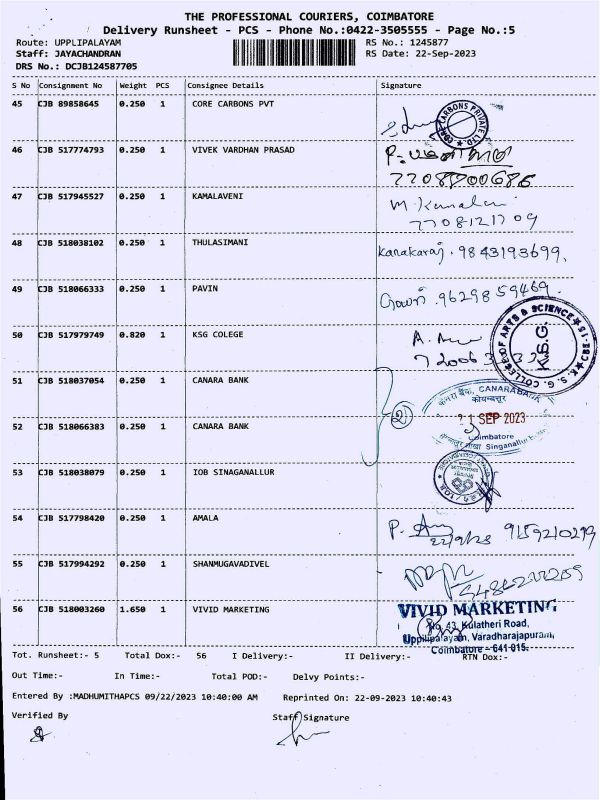 THE PROFESSIONAL COURIERS, COIMBATORE
Delivery Runsheet - PCS - Phone No.:0422-3505555 - Page No.:5
Route: UPPLIPALAYAM RS No.: 1245877
Staff: JAYACHANDRAN RS Date: 22-Sep-2023
DRS No.: DCJB124587705
S No Consignment No Weight PCS Consignee Details Signature
45 CJB 89858645 0.250 1 CORE CARBONS PVT
CORE CARBONS PRIVATE LTD.
46 CJB 517774793 0.250 1 VIVEK VARDHAN PRASAD
47 CJB 517945527 0.250 1 KAMALAVENI M. Kamalaveni
7708121709
48 CJB 518038102 0.250 1 THULASIMANI Kanakaraj. 9843193699.
49 CJB 518066333 0.250 1 PAVIN 9629859469.
50 CJB 517979749 0.820 1 KSG COLEGE
K. S. G. COLLEGE OF ARTS & SCIENCE CBE-15
K.S.G.
51 CJB 518037054 0.250 1 CANARA BANK
केनरा बैंक, CANARA BANK
कोयम्बत्तूर
21 SEP 2023
52 CJB 518066383 0.250 1 CANARA BANK (2)
Coimbatore
शाखा Singanallur
53 CJB 518038079 0.250 1 IOB SINAGANALLUR
54 CJB 517798420 0.250 1 AMALA 9159210299
22/9/23
55 CJB 517994292 0.250 1 SHANMUGAVADIVEL
56 CJB 518003260 1.650 1 VIVID MARKETING VIVID MARKETING
No. 43, Kulatheri Road,
Uppilipalayam, Varadharajapuram,
Coimbatore - 641 015.
Tot. Runsheet:- 5 Total Dox:- 56 I Delivery:- II Delivery:- RTN Dox:-
Out Time:- In Time:- Total POD:- Delvy Points:-
Entered By :MADHUMITHAPCS 09/22/2023 10:40:00 AM Reprinted On: 22-09-2023 10:40:43
Verified By Staff Signature